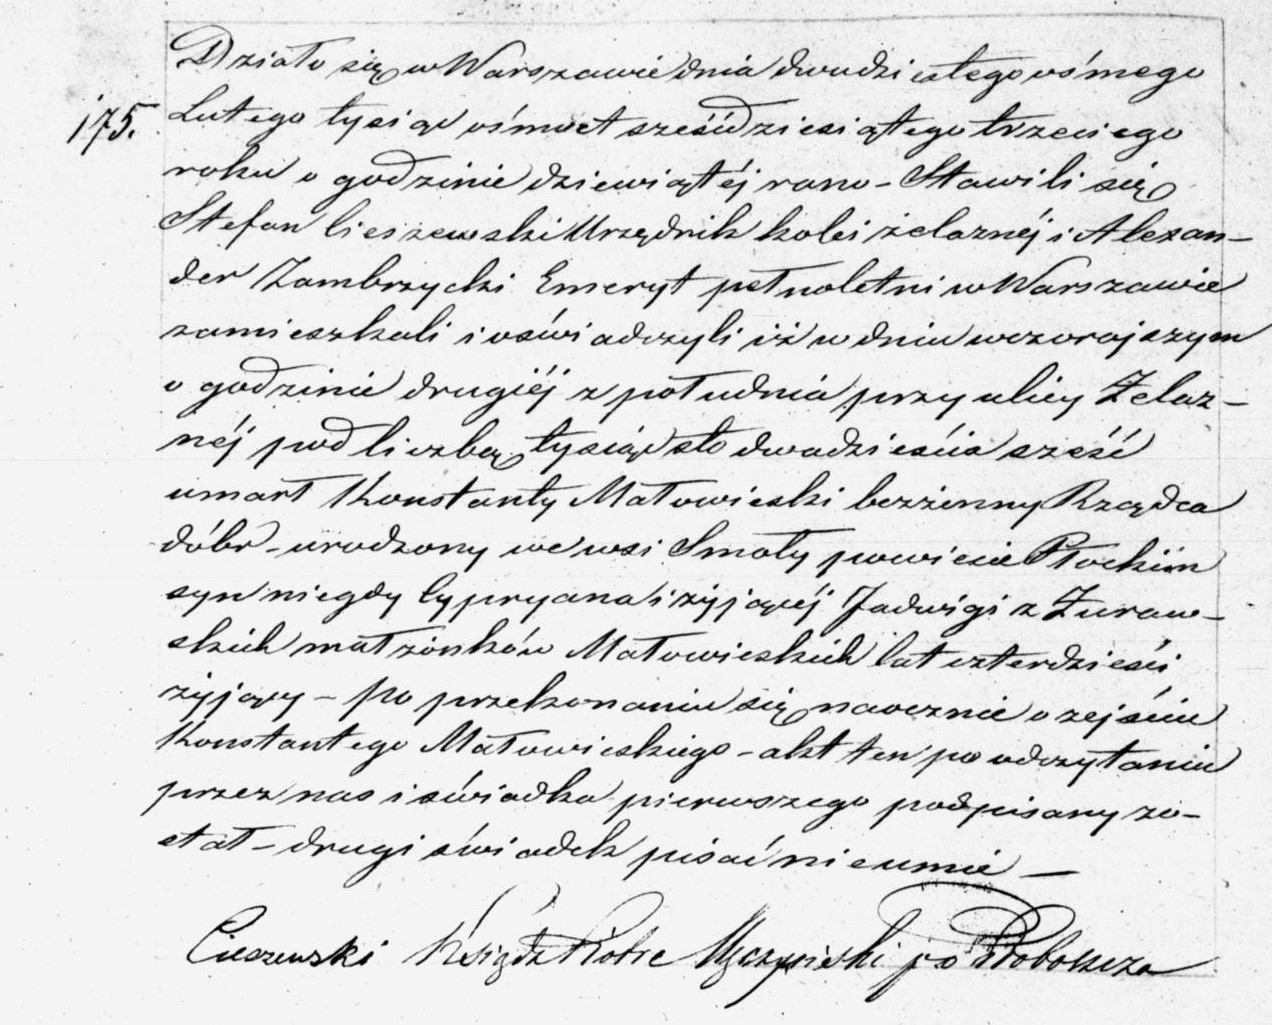 175.
Działo się w Warszawie dnia dwudziestego ósmego
Lutego tysiąc ośmset sześćdziesiątego trzeciego
roku o godzinie dziewiątéj rano – Stawili się
Stefan Cieszewski Urzędnik kolei żelaznéj i Alexan–
der Zambrzycki Emeryt pełnoletni w Warszawie
zamieszkali i oświadczyli iż w dniu wczorajszym
o godzinie drugiéj z południa przy ulicy Żelaz–
néj pod liczbą tysiąc sto dwadzieścia sześć
umarł Konstanty Małowieski bezżenny Rządca
dóbr – urodzony we wsi Smoły powiecie Płockim
syn niegdy Cypryana i żyjącéj Jadwigi z Żuraw–
skich małżonków Małowieskich lat czterdzieści
żyjący – po przekonaniu się naocznie o zejściu
Konstantego Małowieskiego – akt ten po odczytaniu
przez nas i świadka pierwszego podpisany zo–
stał – drugi świadek pisać nieumie —
Cieszewski Ksiądz Piotr po Proboszcza